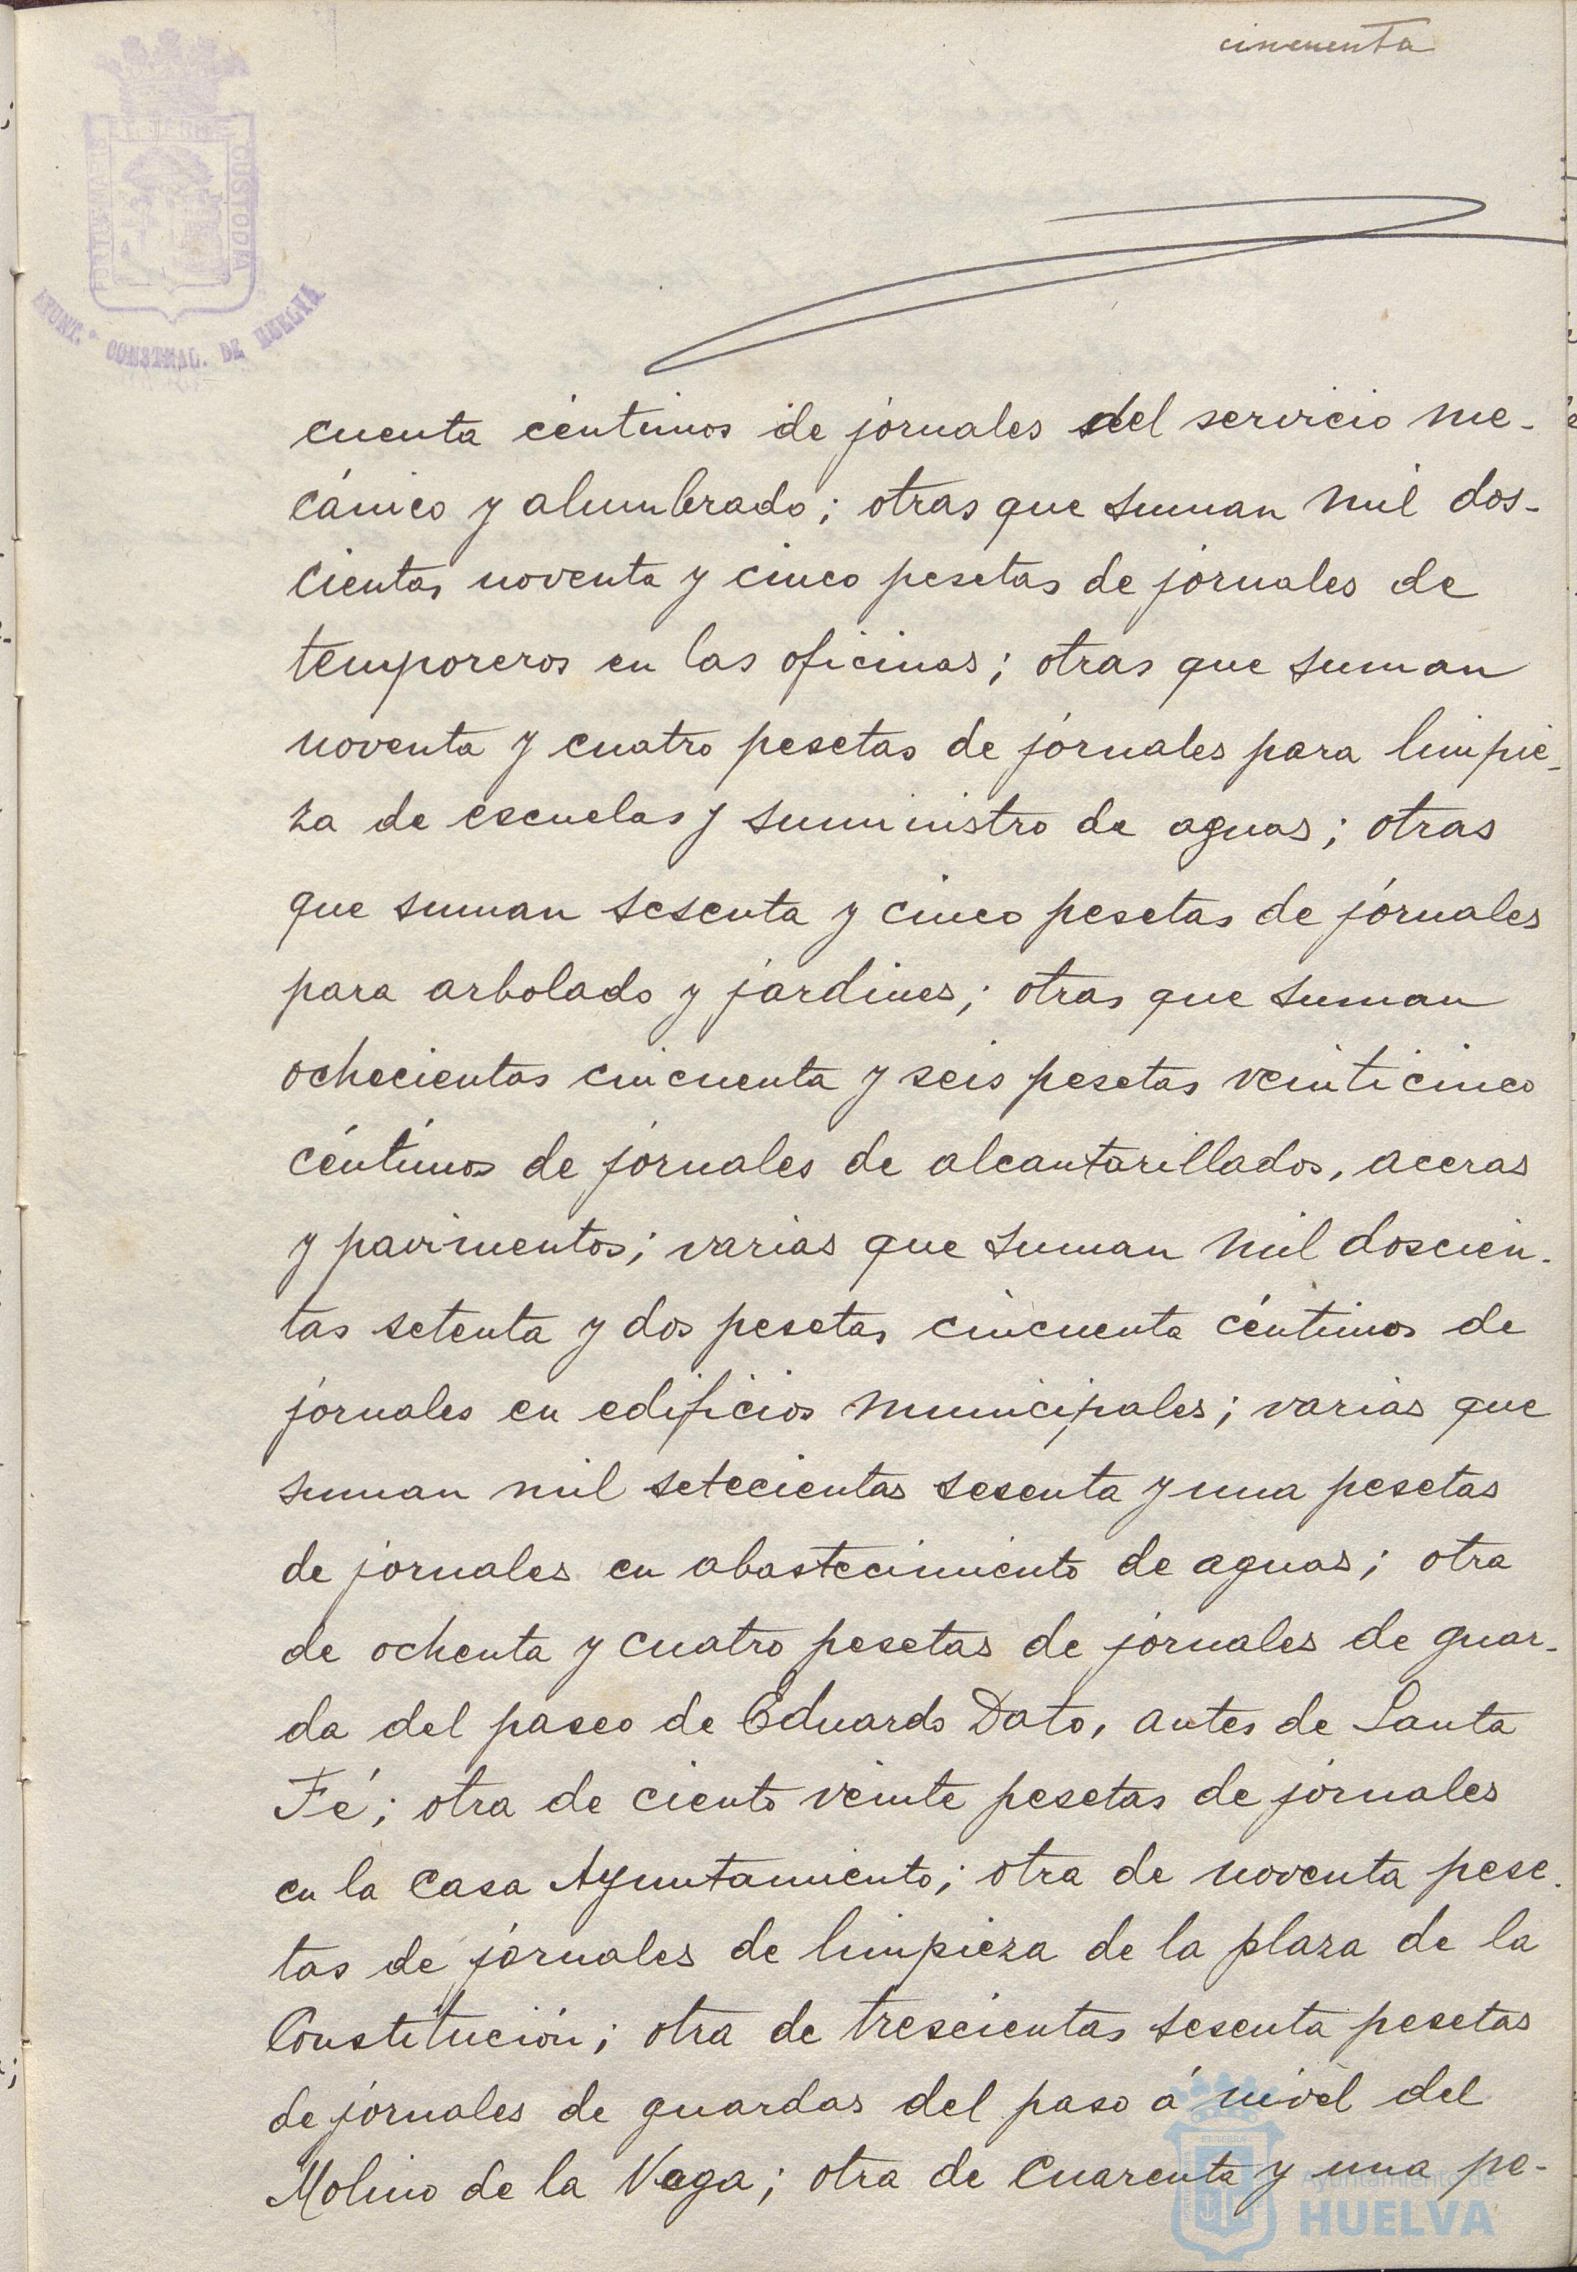 cincuenta
AYUNT.º CONSTNAL. DE HUELVA
CUSTODIA
cuenta céntimos de jornales del servicio me-
cánico y alumbrado; otras que suman mil dos-
cientas noventa y cinco pesetas de jornales de
temporeros en las oficinas; otras que suman
noventa y cuatro pesetas de jornales para limpie-
za de escuelas y suministro de aguas; otras
que suman sesenta y cinco pesetas de jornales
para arbolado y jardines; otras que suman
ochecientas cincuenta y seis pesetas veinticinco
céntimos de jornales de alcantarillados, aceras
y pavimentos; varias que suman mil doscien-
tas setenta y dos pesetas cincuenta céntimos de
jornales en edificios municipales; varias que
suman mil setecientas sesenta y una pesetas
de jornales en abastecimiento de aguas; otra
de ochenta y cuatro pesetas de jornales de guar-
da del paseo de Eduardo Dato, antes de Santa
Fé; otra de ciento veinte pesetas de jornales
en la Casa Ayuntamiento; otra de noventa pese-
tas de jornales de limpieza de la plaza de la
Constitución; otra de trescientas sesenta pesetas
de jornales de guardas del paso á nivel del
Molino de la Vega; otra de cuarenta y una pe-
Ayuntamiento de
HUELVA